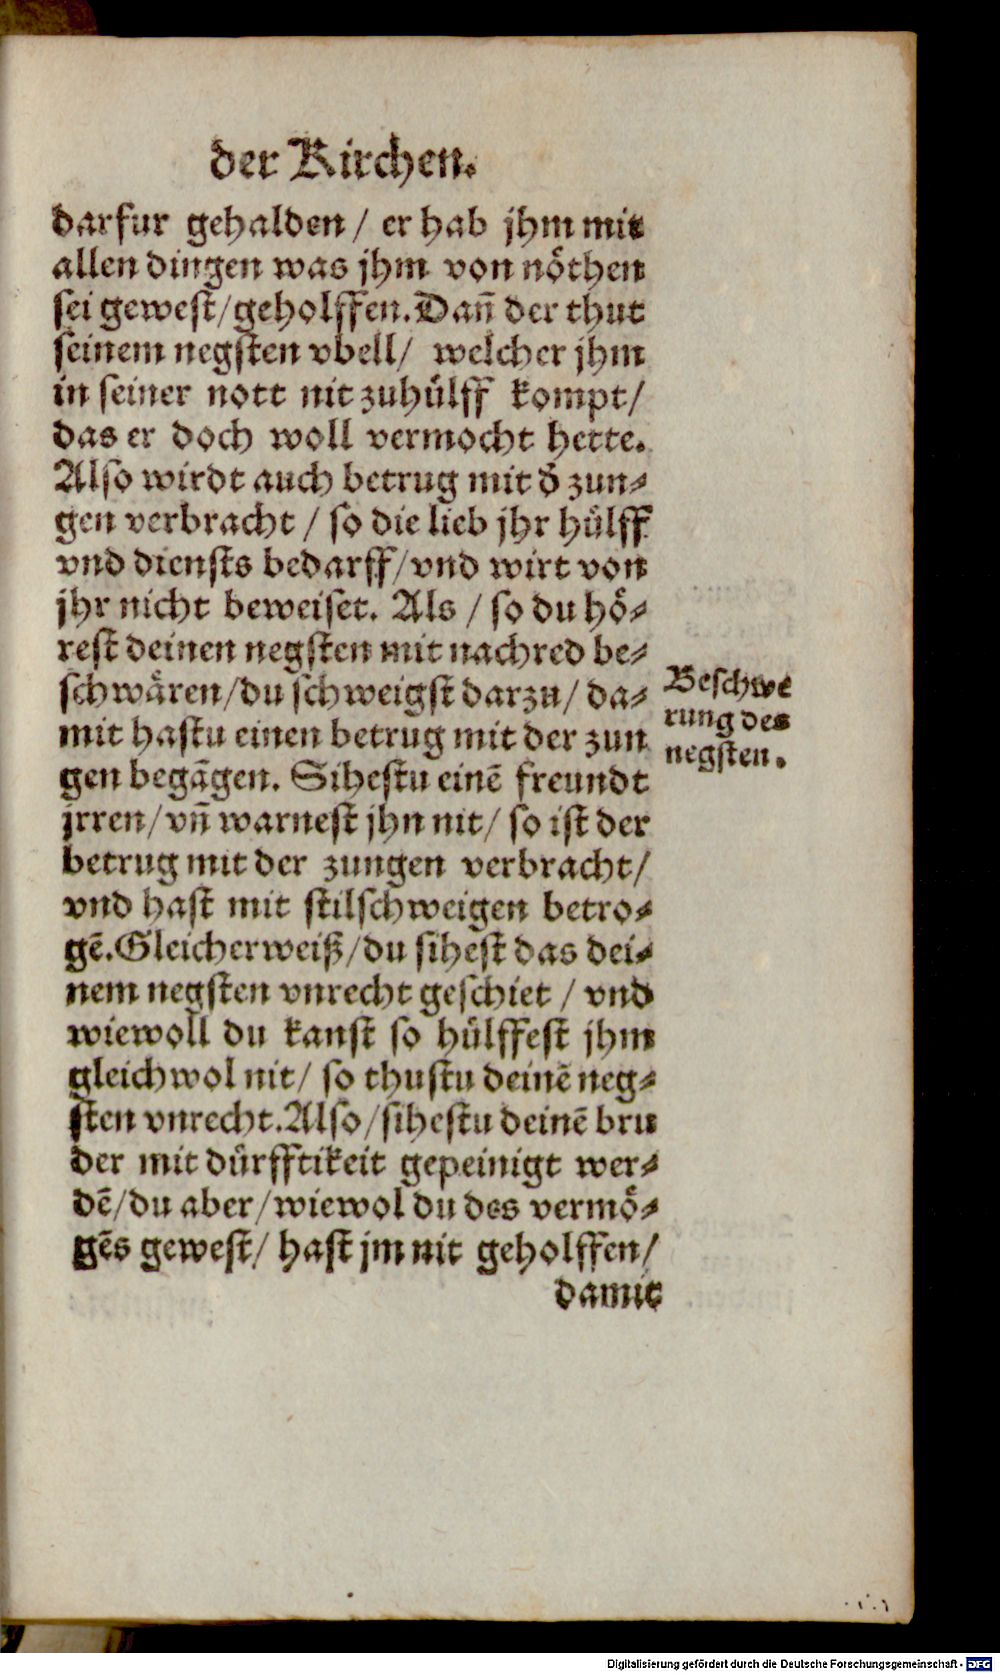 der Kirchen.
darfur gehalden / er hab jhm mit
allen dingen was jhm von nöthen
sei gewest/geholffen. Dañ der thut
seinem negsten vbell/ welcher jhm
in seiner nott nit zuhülff kompt/
das er doch woll vermocht hette.
Also wirdt auch betrug mit d̄ zun⸗
gen verbracht / so die lieb jhr hülff
vnd diensts bedarff/vnd wirt von
jhr nicht beweiset. Als / so du hö⸗
rest deinen negsten mit nachred be⸗
schwären/du schweigst darzu/ da⸗
mit hastu einen betrug mit der zun
gen begāgen. Sihestu einē freundt
jrren/vñ warnest jhn nit/ so ist der
betrug mit der zungen verbracht/
vnd hast mit stilschweigen betro⸗
gē. Gleicherweiß/du sihest das dei⸗
nem negsten vnrecht geschiet / vnd
wiewoll du kanst so hülffest jhm
gleichwol nit/ so thustu deinē neg⸗
sten vnrecht. Also/sihestu deinē bru
der mit dürfftikeit gepeinigt wer⸗
dē/du aber/wiewol du des vermö⸗
gēs gewest/ hast jm nit geholffen/
damit
Beschwe
rung des
negsten.
Digitalisierung gefördert durch die Deutsche Forschungsgemeinschaft - DFG